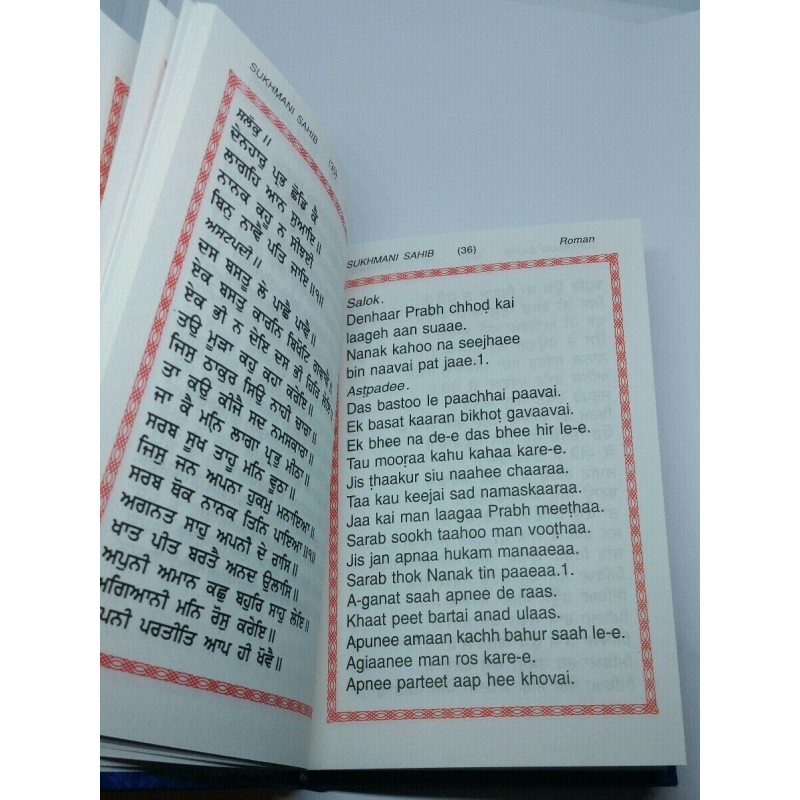 SUKHMANI SAHIB (35)
ਸਲੋਕੁ॥
ਦੇਨਹਾਰੁ ਪ੍ਰਭ ਛੋਡਿ ਕੈ
ਲਾਗਹਿ ਆਨ ਸੁਆਇ॥
ਨਾਨਕ ਕਹੂ ਨ ਸੀਝਈ
ਬਿਨੁ ਨਾਵੈ ਪਤਿ ਜਾਇ॥੧॥
ਅਸਟਪਦੀ॥
ਦਸ ਬਸਤੂ ਲੇ ਪਾਛੈ ਪਾਵੈ॥
ਏਕ ਬਸਤੁ ਕਾਰਨਿ ਬਿਖੋਟਿ ਗਵਾਵੈ॥
ਏਕ ਭੀ ਨ ਦੇਇ ਦਸ ਭੀ ਹਿਰਿ ਲੇਇ॥
ਤਉ ਮੂੜਾ ਕਹੁ ਕਹਾ ਕਰੇਇ॥
ਜਿਸੁ ਠਾਕੁਰ ਸਿਉ ਨਾਹੀ ਚਾਰਾ॥
ਤਾ ਕਉ ਕੀਜੈ ਸਦ ਨਮਸਕਾਰਾ॥
ਜਾ ਕੈ ਮਨਿ ਲਾਗਾ ਪ੍ਰਭੁ ਮੀਠਾ॥
ਸਰਬ ਸੂਖ ਤਾਹੂ ਮਨਿ ਵੂਠਾ॥
ਜਿਸੁ ਜਨ ਅਪਨਾ ਹੁਕਮੁ ਮਨਾਇਆ॥
ਸਰਬ ਥੋਕ ਨਾਨਕ ਤਿਨਿ ਪਾਇਆ॥੧॥
ਅਗਨਤ ਸਾਹੁ ਅਪਨੀ ਦੇ ਰਾਸਿ॥
ਖਾਤ ਪੀਤ ਬਰਤੈ ਅਨਦ ਉਲਾਸਿ॥
ਅਪੁਨੀ ਅਮਾਨ ਕਛੁ ਬਹੁਰਿ ਸਾਹੁ ਲੇਇ॥
ਅਗਿਆਨੀ ਮਨਿ ਰੋਸੁ ਕਰੇਇ॥
ਪਨੀ ਪਰਤੀਤਿ ਆਪ ਹੀ ਖੋਵੈ॥
SUKHMANI SAHIB (36) Roman
Salok.
Denhaar Prabh chhoḍ kai
laageh aan suaae.
Nanak kahoo na seejhaee
bin naavai pat jaae.1.
Asṭpadee.
Das bastoo le paachhai paavai.
Ek basat kaaran bikhoṭ gavaavai.
Ek bhee na de-e das bhee hir le-e.
Tau mooṛaa kahu kahaa kare-e.
Jis ṭhaakur siu naahee chaaraa.
Taa kau keejai sad namaskaaraa.
Jaa kai man laagaa Prabh meeṭhaa.
Sarab sookh taahoo man vooṭhaa.
Jis jan apnaa hukam manaaeaa.
Sarab thok Nanak tin paaeaa.1.
A-ganat saah apnee de raas.
Khaat peet bartai anad ulaas.
Apunee amaan kachh bahur saah le-e.
Agiaanee man ros kare-e.
Apnee parteet aap hee khovai.